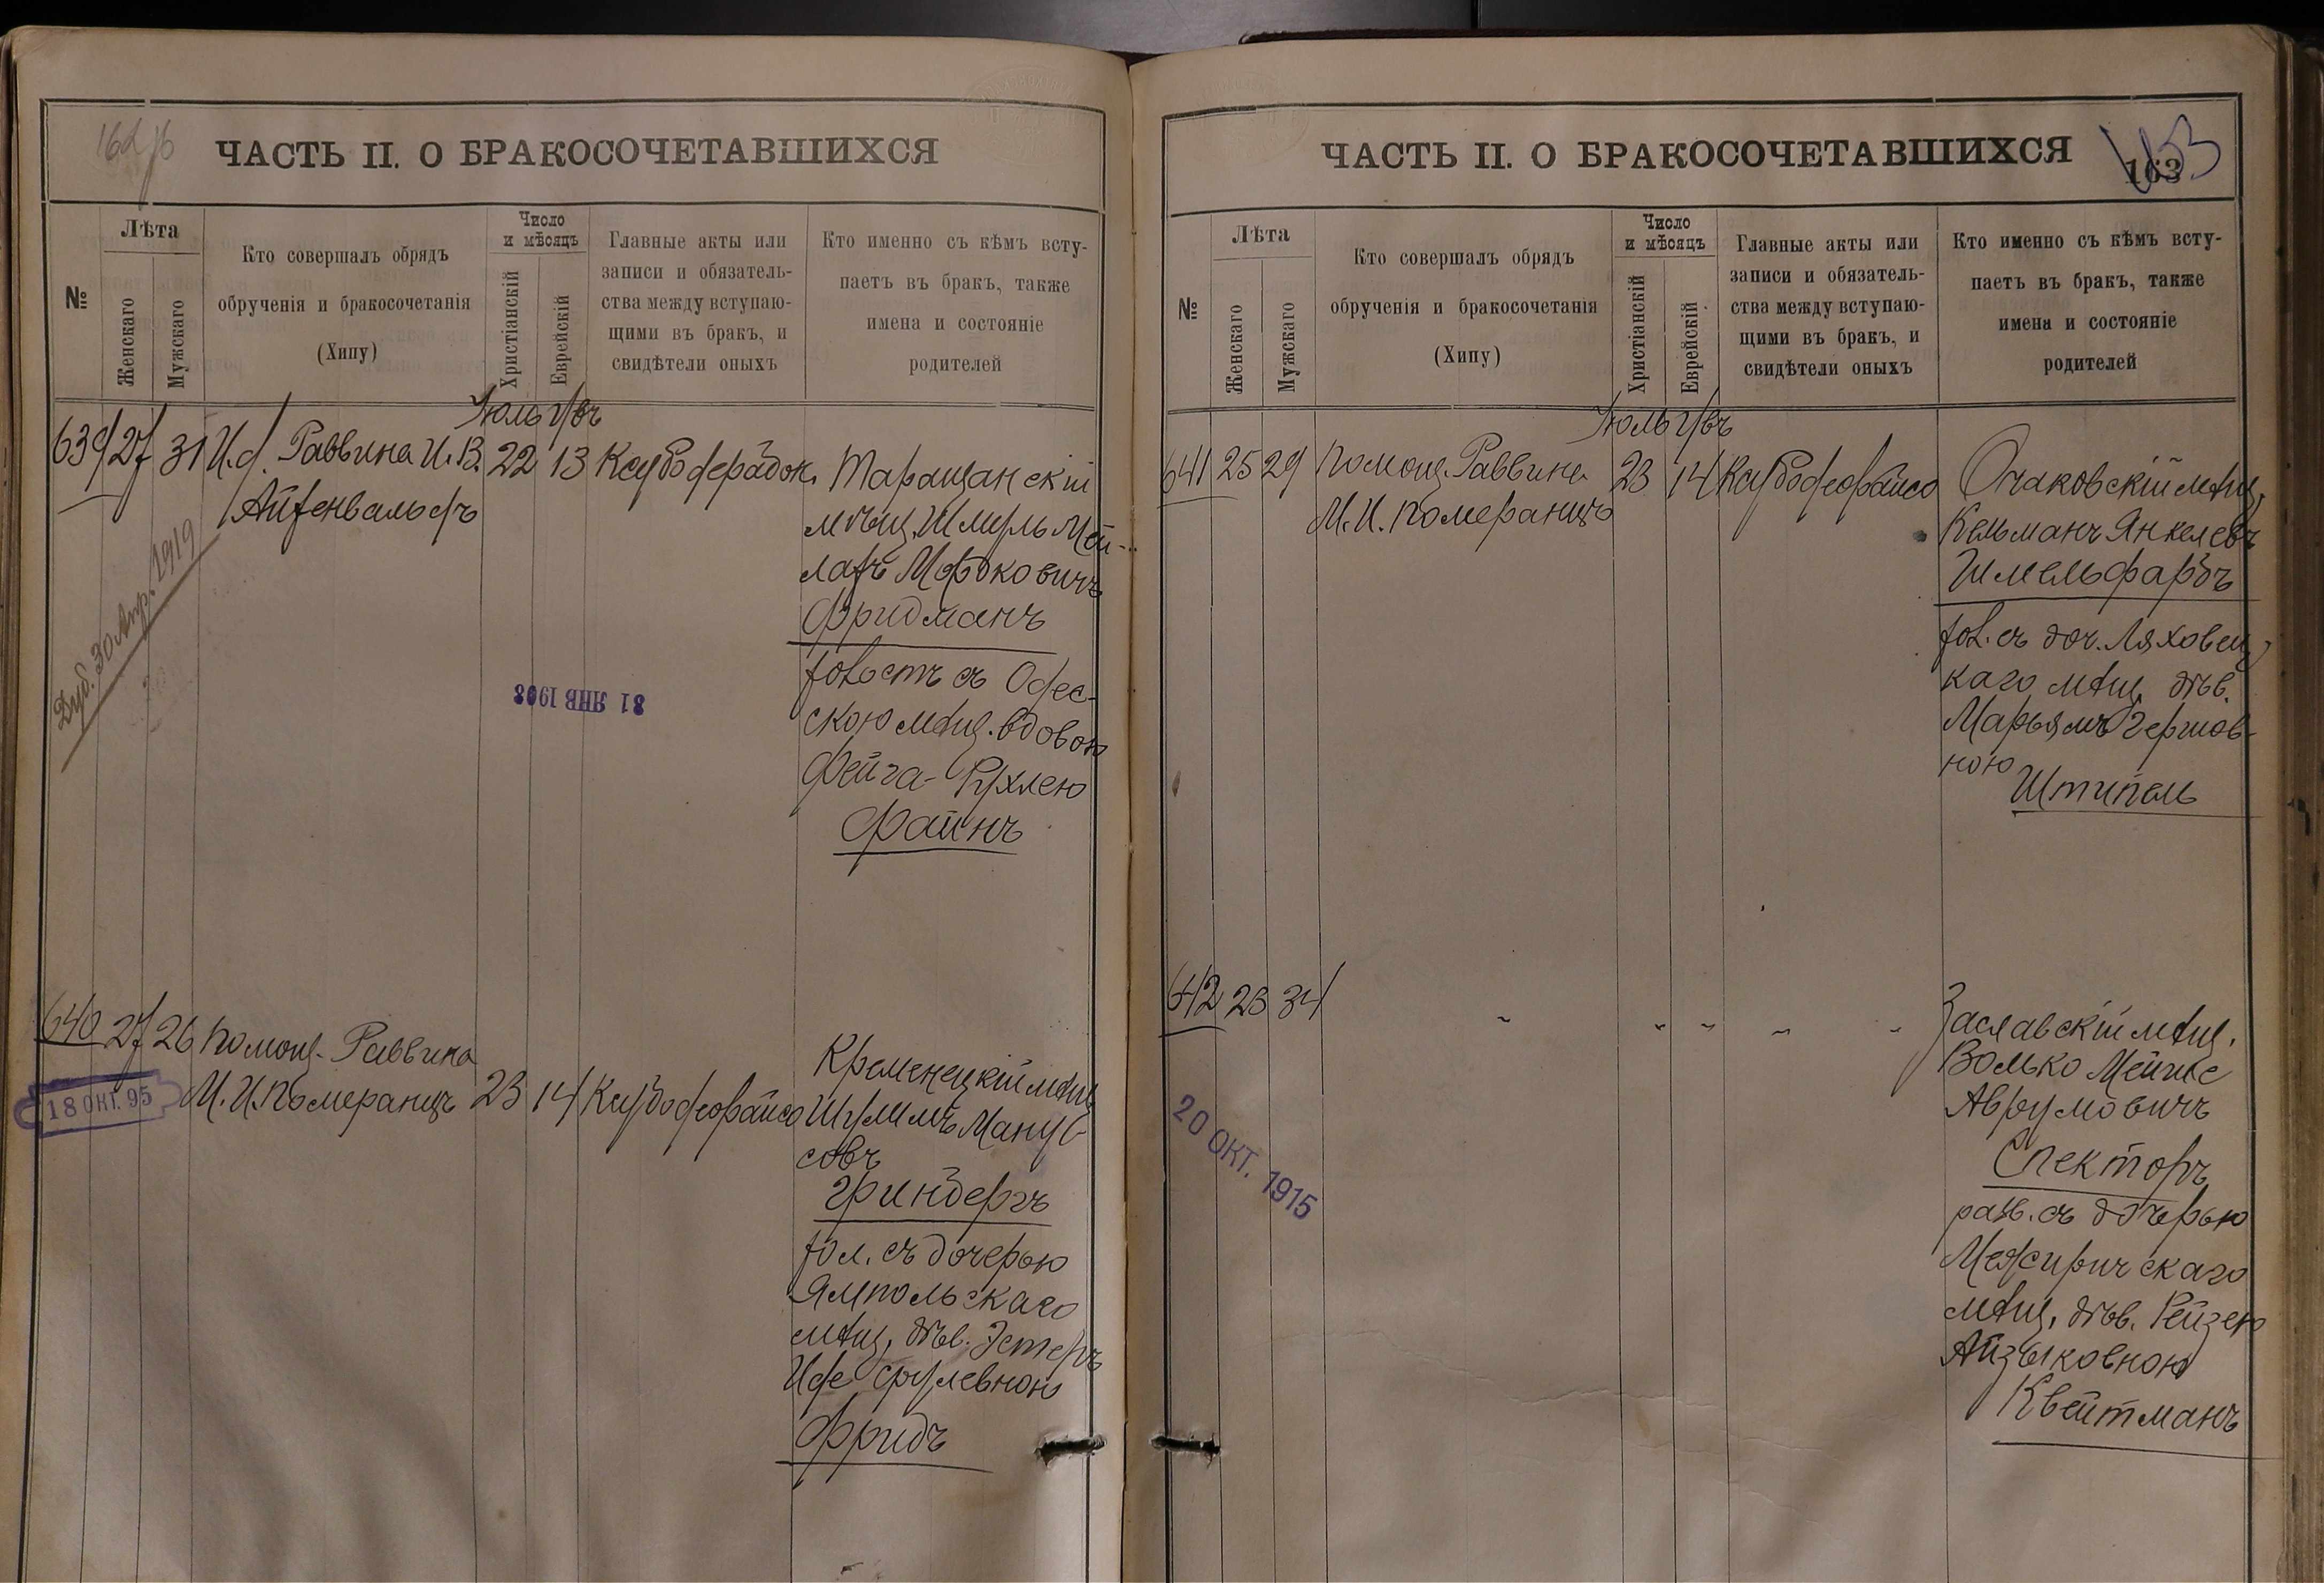 162 об
ЧАСТЬ II. О БРАКОСОЧЕТАВШИХСЯ
№
Лѣта
Женскаго
Мужскаго
Кто совершалъ обрядъ
обрученія и бракосочетанія
(Хипу)
Число
и мѣсяцъ
Христіанскій
Еврейскій
Главные акты или
записи и обязатель-
ства между вступаю-
щими въ бракъ, и
свидѣтели оныхъ
Кто именно съ кѣмъ всту-
паетъ въ бракъ, также
имена и состояніе
родителей
Іюль Овъ
639 27 31 И.д. Раввина И.В. 22 13
Айзенвальдъ
Таращанскій
мѣщ. Шмерль Мей-
лахъ
Фридманъ
холостъ съ Одес-
скою мѣщ. вдовою
Фейга-Рухлею
Файнъ
Дуб. 30 Апр. 1919
31 ЯНВ 1908
640 27 26 Помощ. Раввина
М.И. Померанцъ 23 14
18 ОКТ. 95
Кременецкій мѣщ.
Шулимъ Ману-
совъ
Гринбергъ
хол. съ дочерью
Ямпольскаго
мѣщ. дѣв. Эстеръ
Фридъ
ЧАСТЬ II. О БРАКОСОЧЕТАВШИХСЯ
163
163
№
Лѣта
Женскаго
Мужскаго
Кто совершалъ обрядъ
обрученія и бракосочетанія
(Хипу)
Число
и мѣсяцъ
Христіанскій
Еврейскій
Главные акты или
записи и обязатель-
ства между вступаю-
щими въ бракъ, и
свидѣтели оныхъ
Кто именно съ кѣмъ всту-
паетъ въ бракъ, также
имена и состояніе
родителей
Іюль Овъ
641 25 29 Помощ. Раввина 23 14
М.И. Померанцъ
Очаковскій мѣщ.
Кельманъ Янкелевъ
Шмельфарбъ
хол. съ доч. Ляховец
каго мѣщ. дѣв.
Марьямъ Гершов-
ною
Штипель
642 23 34 " " " " "
20 ОКТ. 1915
Заславскій мѣщ.
Волько Мейше
Аврумовичъ
Спекторъ
разв. съ дочерью
Межиричскаго
мѣщ. дѣв. Рейзею
Айзыковною
Квейтманъ